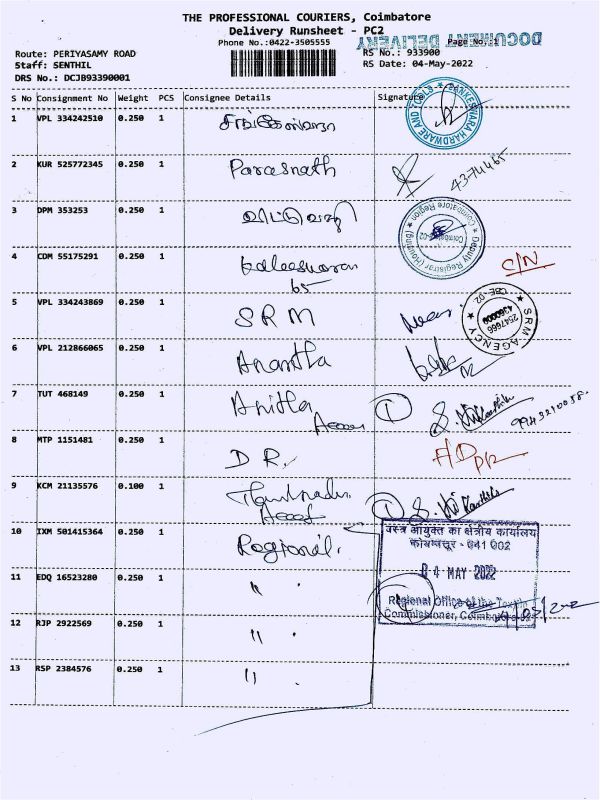 THE PROFESSIONAL COURIERS, Coimbatore
Delivery Runsheet - PC2
Phone No.:0422-3505555
Page No. 1
DOCUMENT DELIVERY
Route: PERIYASAMY ROAD
Staff: SENTHIL
DRS No.: DCJB93390001
RS No.: 933900
RS Date: 04-May-2022
S No Consignment No Weight PCS Consignee Details Signature
1 VPL 334242510 0.250 1
SANKESHWARA HARDWARE AND TOOLS
2 KUR 525772345 0.250 1 Parasnath
3 DPM 353253 0.250 1
Deputy Registrar (Housing)
Coimbatore Region
Coimbatore-02
4 CDM 55175291 0.250 1 Kaleeswaran C/N
65
5 VPL 334243869 0.250 1 SRM
SRM AGENCY
CBE-02
2547666
4360009
6 VPL 212866065 0.250 1 Anantha
7 TUT 468149 0.250 1 Anitha 1
9943210058
8 MTP 1151481 0.250 1 D R.
9 KCM 21135576 0.100 1 Tamilnadu
10 IXM 501415364 0.250 1 Regional.
वस्त्र आयुक्त का क्षेत्रीय कार्यालय
कोयम्बत्तूर - 641 002
04 MAY 2022
Regional Office of the Textile
Commissioner, Coimbatore-02
11 EDQ 16523280 0.250 1 "
12 RJP 2922569 0.250 1 "
13 RSP 2384576 0.250 1 "